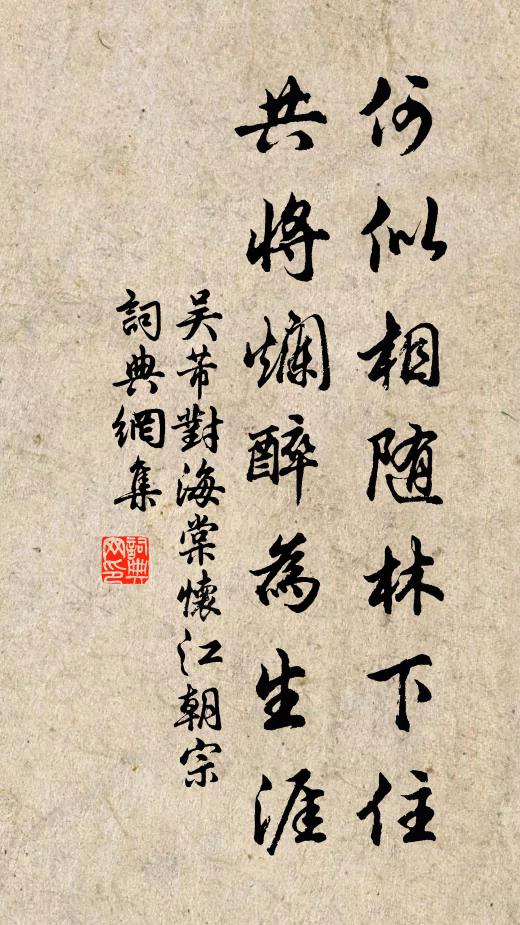 何似相随林下住
共将爛醉為生涯
吴芾對海棠懷江朝宗
詞典網集
詞典网印